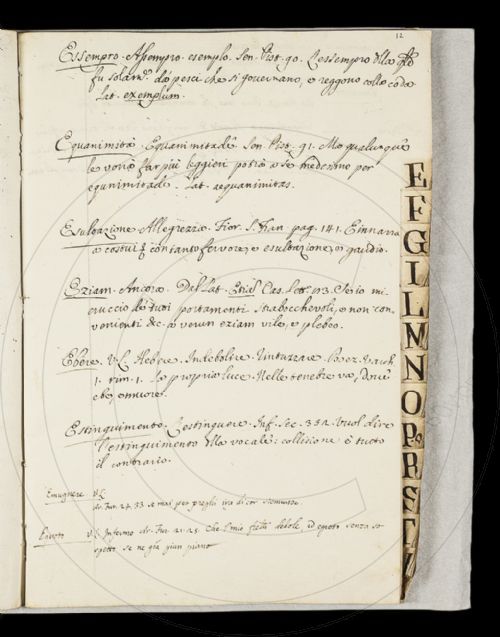 12
Essempro. Asempro. esemplo. Sen. Pist. 90. L'essempro
fu solam.te da' pesci che si governano, e reggono colla coda
Lat. exemplum.
Equanimità. Equanimitade. Sen. Pist. 91. Ma qualunque
le vorrà far più leggieri potrà a se medesimo per
equnimitade. Lat. aequanimitas.
Esultazione Allegrezza. Fior. S. Fran. pag. 141. E innarra
a costui con tanto fervore, e esultazione, o gaudio.
Eziam. Ancora. Dal Lat. Etiam Cas. Lett. 113. Se io mi
cruccio de' tuoi portamenti Strabocchevoli, e non con-
venienti &c. a verun eziam vile, e plebeo.
Ebere. V.L. Hebere. Indebolire. Boez. Varch
1. rim. 1. La propria luce. Nelle tenebre va, dove
ebe, e muore.
Estinguimento. L'estinguere. Inf. Sec. 352. Vuol dire
l'estinguimento della vocale: collisione è tutto
il contrario.
Emugnere V.L.
Ar. Fur. 27. 33
V.L. Infermo Ar. Fur. 21. 25. Che debole, ed egroto senza so
spetto se ne già pian piano
E
F
G
I
L
M
N
O
P
R
S
T